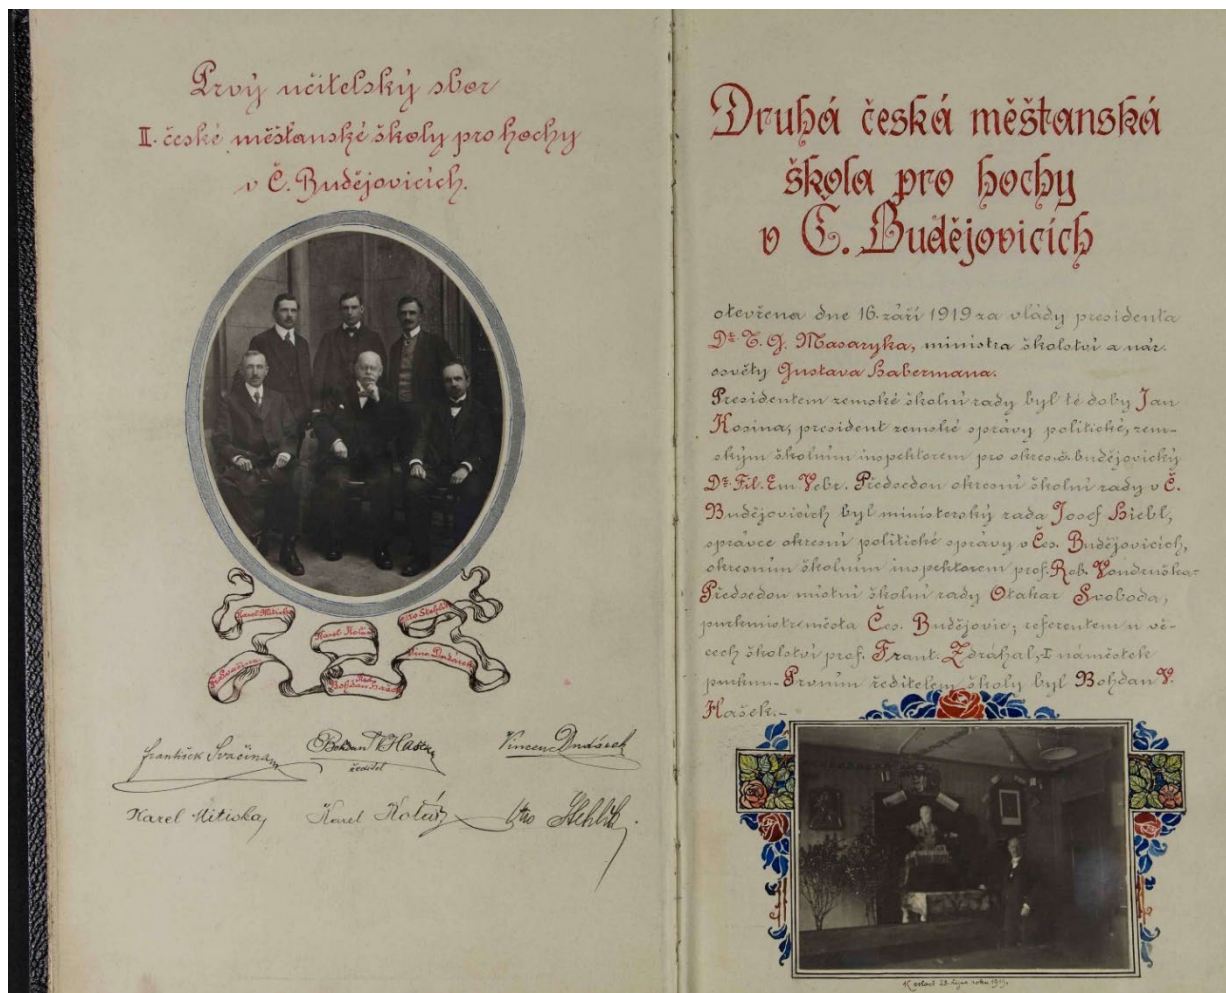 Prvý učitelský sbor
II. české měšťanské školy pro hochy
v Č. Budějovicích.
Karel Mitiska
Otto Stehlík
Karel Kolář
Fr. Svačina
Bohdan Hašek
Vinc. Dudárek
František Svačina
Bohdan V. Hašek
ředitel
Vincenc Dudárek
Karel Mitiska
Karel Kolář
Otto Stehlík
Druhá česká měšťanská
škola pro hochy
v Č. Budějovicích
otevřena dne 16. září 1919 za vlády presidenta
Dr. T. G. Masaryka, ministra školství a nár.
osvěty Gustava Habermana.
Presidentem zemské školní rady byl té doby Jan
Kosina, president zemské správy politické, zem-
ským školním inspektorem pro okres č. budějovický
Dr. Fil. Em Vebr. Předsedou okresní školní rady v Č.
Budějovicích byl ministerský rada Josef Hiebl,
správce okresní politické správy v Čes. Budějovicích,
okresním školním inspektorem prof. Rob. Vondruška.
Předsedou místní školní rady Otakar Svoboda,
purkmistr města Čes. Budějovic; referentem u vě-
cech školství prof. Frant. Zdráhal, I náměstek
purkm. - Prvním ředitelem školy byl Bohdan V.
Hašek.-
K oslavě 28. října roku 1919.